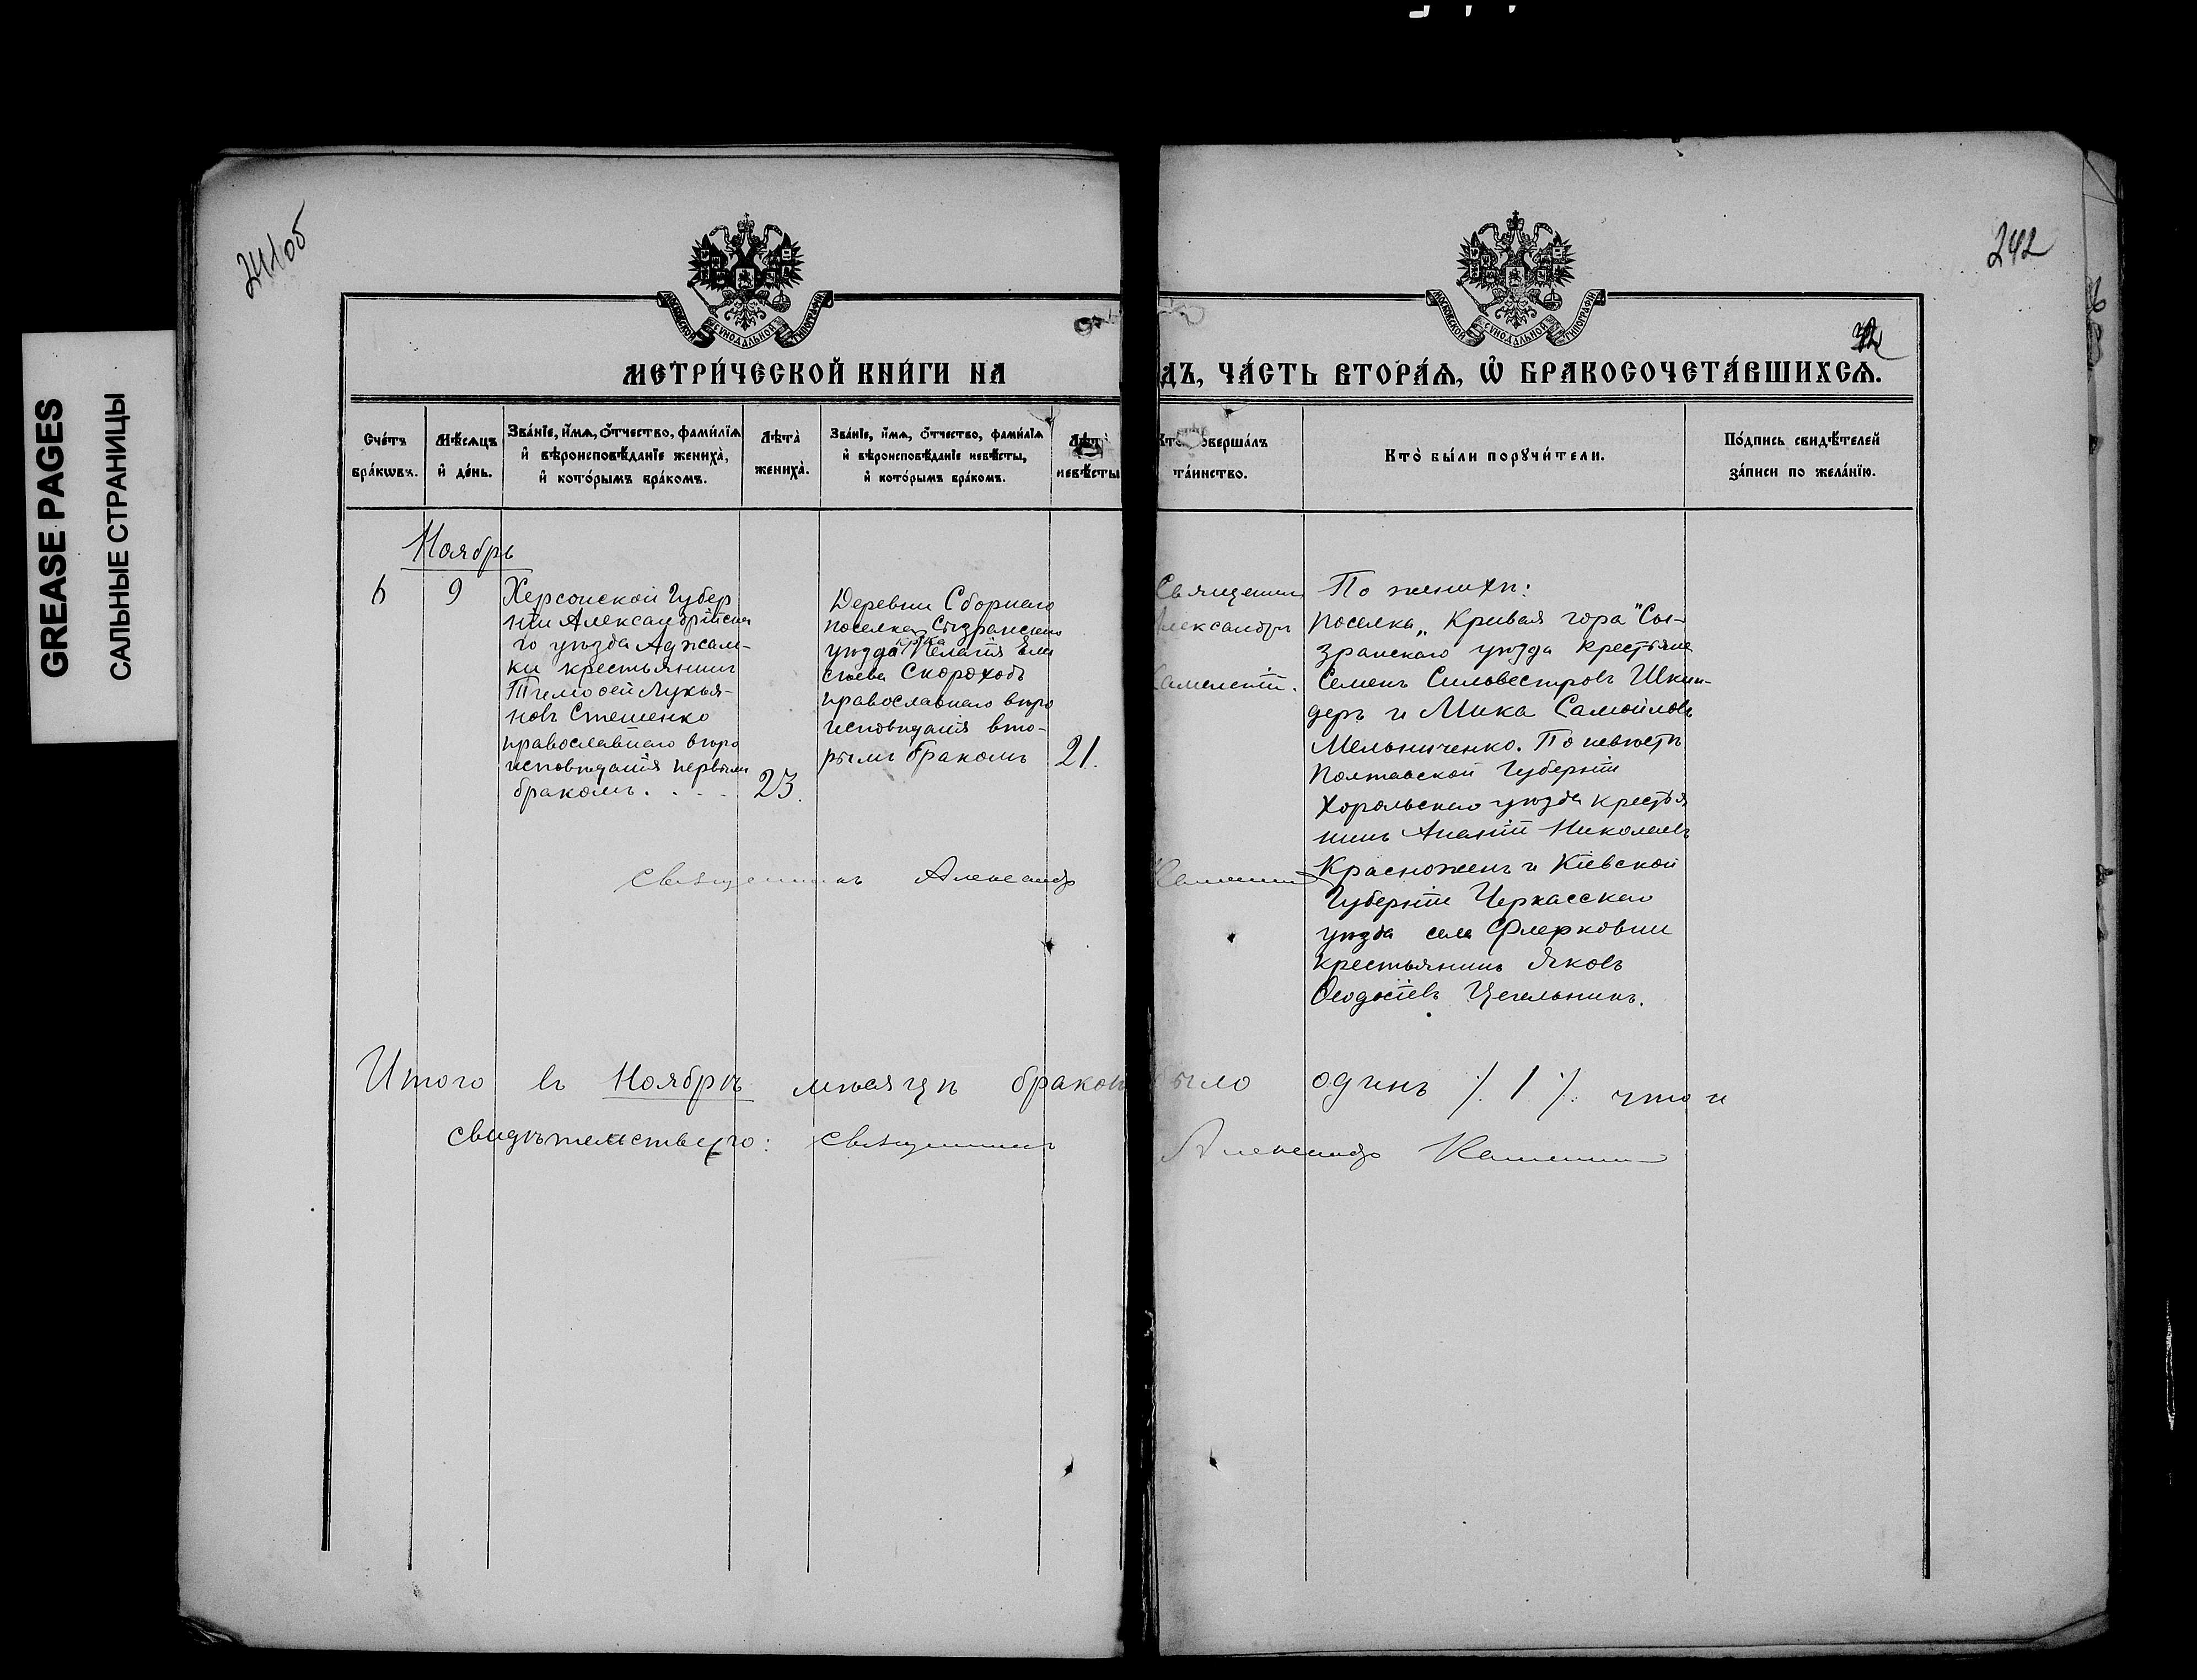 GREASE PAGES
САЛЬНЫЕ СТРАНИЦЫ
241об
242
МОСКОВСКОЙ СѴНОДАЛЬНОЙ ТИПОГРАФІИ
МОСКОВСКОЙ СѴНОДАЛЬНОЙ ТИПОГРАФІИ
МЕТРИ́ЧЕСКОЙ КНИ́ГИ НА
ДЪ, ЧА́СТЬ ВТОРА́Ѧ, Ѡ҆ БРАКОСОЧЕТА́ВШИХСѦ.
Сче́тъ бра́кѡвъ.
Мѣ́сѧцъ и҆ де́нь.
Зва́нїе, и҆́мѧ, ѻ҆́тчество, фами́лїѧ
и҆ вѣроисповѣ́данїе жениха̀,
и҆ кото́рымъ бра́комъ.
Лѣта̀ жениха̀.
Зва́нїе, и҆́мѧ, ѻ҆́тчество, фами́лїѧ
и҆ вѣроисповѣ́данїе невѣ́сты,
и҆ кото́рымъ бра́комъ.
Лѣта̀ невѣ́сты
Кто̀ соверша́лъ
та́инство.
Кто̀ бы́ли порꙋчи́тели.
По́дпись свидѣ́телей
за́писи по жела́нїю.
Ноябрь
6
9
Херсонской Губер
ніи Александрійска
го уѣзда Аджам-
ки крестьянинъ
Тимофей Лукья-
новъ Стешенко
православнаго вѣро
исповѣданія первымъ
бракомъ. . . .
23.
Деревни Сборнаго
поселка Сызранскаго
уѣзда кр-ка Пелагія Ели
сѣева Скороходъ
православнаго вѣро
исповѣданія вто-
рымъ бракомъ
21.
Священник
Александръ
Каменскій.
По женихѣ:
поселка „Кривая гора" Сы-
зранскаго уѣзда крестьяне
Семенъ Сильвестровъ Шкин-
деръ и Мика Самойловъ
Мельниченко. По невѣстѣ
Полтавской Губерніи
Хорольскаго уѣзда крестья
нинъ Ананій Николаевъ
Красноженъ и Кіевской
Губерніи Черкасскаго
уѣзда села Флерковки
крестьянинъ Яковъ
Ѳеодосіевъ Цегельникъ.
Священникъ Александр
Итого въ Ноябрѣ мѣсяцѣ браковъ было одинъ /. 1 /. что и
свидѣтельствую: Священникъ Александр